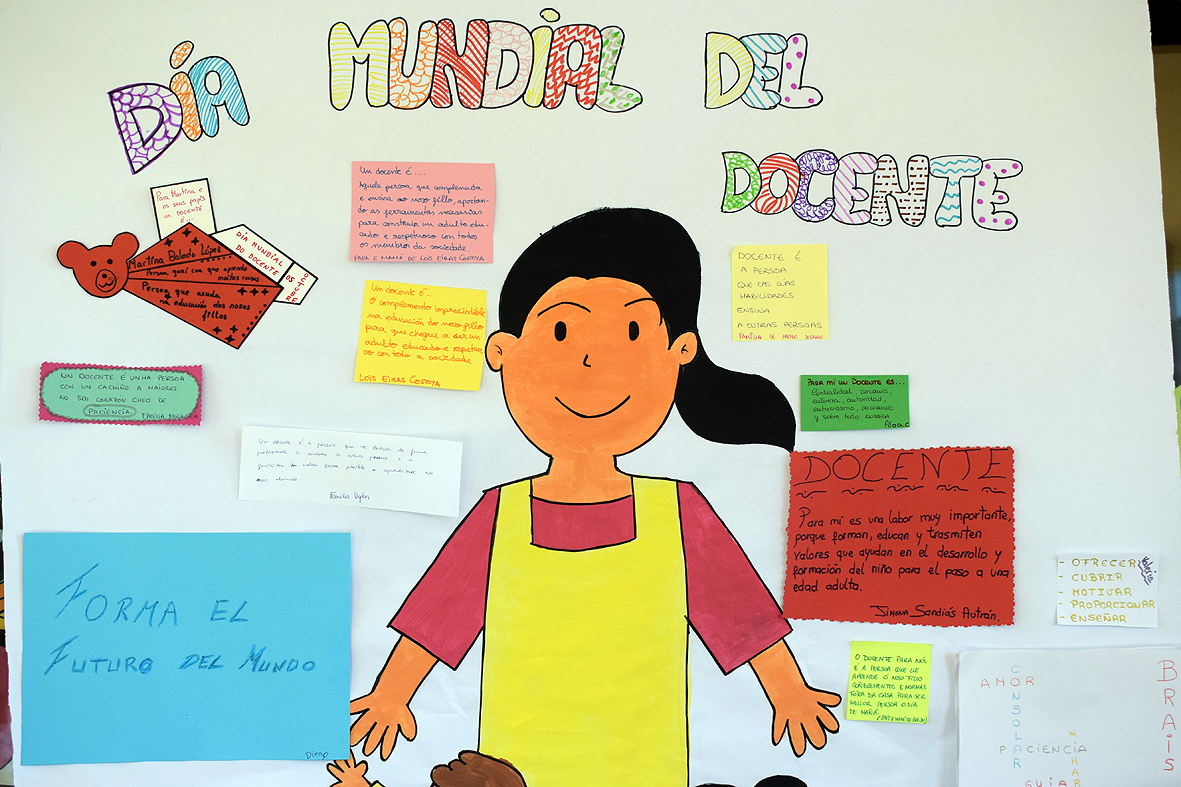 DÍA
MUNDIAL
DEL
DOCENTE
Para Martina e
os seus papás
un DOCENTE
é...
DÍA MUNDIAL
DO DOCENTE
05
OCTUBRE
Martina Balado López
Persoa guai coa que aprendo
moitas cousas
Persoa que axuda
na educación dos nosos
fillos
Un docente é....
Aquela persoa que complementa
e ensina ao noso fillo, aportan-
do as ferramentas necesarias
para construir un adulto edu-
cado e respetuoso con todos
os membros da sociedade
PAPI E MAMÁ DE LOIS EIRAS COSTOYA
Un docente é...
O complemento imprescindible
na educación do noso fillo
para que chegue a ser un
adulto educado e respetuo
so con toda a sociedade
LOIS EIRAS COSTOYA
DOCENTE É
A PERSOA
QUE CAS SÚAS
HABILIDADES
ENSINA
A OUTRAS PERSOAS
FAMILIA DE MATEO
UN DOCENTE É UNHA PERSOA
CON UN CACHIÑO A MAIORES
NO SEU CORAZÓN CHEO DE
PACIENCIA.
FAMILIA
PARA MÍ UN DOCENTE ES...
Cordialidad, cercanía,
entereza, autoridad,
entusiasmo, paciencia
y sobre todo
Un docente é a persoa que se dedica de forma
profesional a
DOCENTE
Para mí es una labor muy importante,
porque forman, educan y trasmiten
valores que ayudan en el desarrollo y
formación del niño para el paso a una
edad adulta.
Jimena Sandiás Autrán.
FORMA EL
FUTURO DEL MUNDO
Diego
- OFRECER
- CUBRIR
- MOTIVAR
- PROPORCIONAR
- ENSEÑAR
Valeria
O DOCENTE PARA NÓS
É A PERSOA QUE LLE
APRENDE Ó NOSO FILLO
COÑECEMENTOS E NORMAS
FORA DA CASA PARA SER
MELLOR PERSOA O DÍA
DE MAÑÁ.
AMOR
CONSOLAR
PACIENCIA
GUIAR
BRAIS